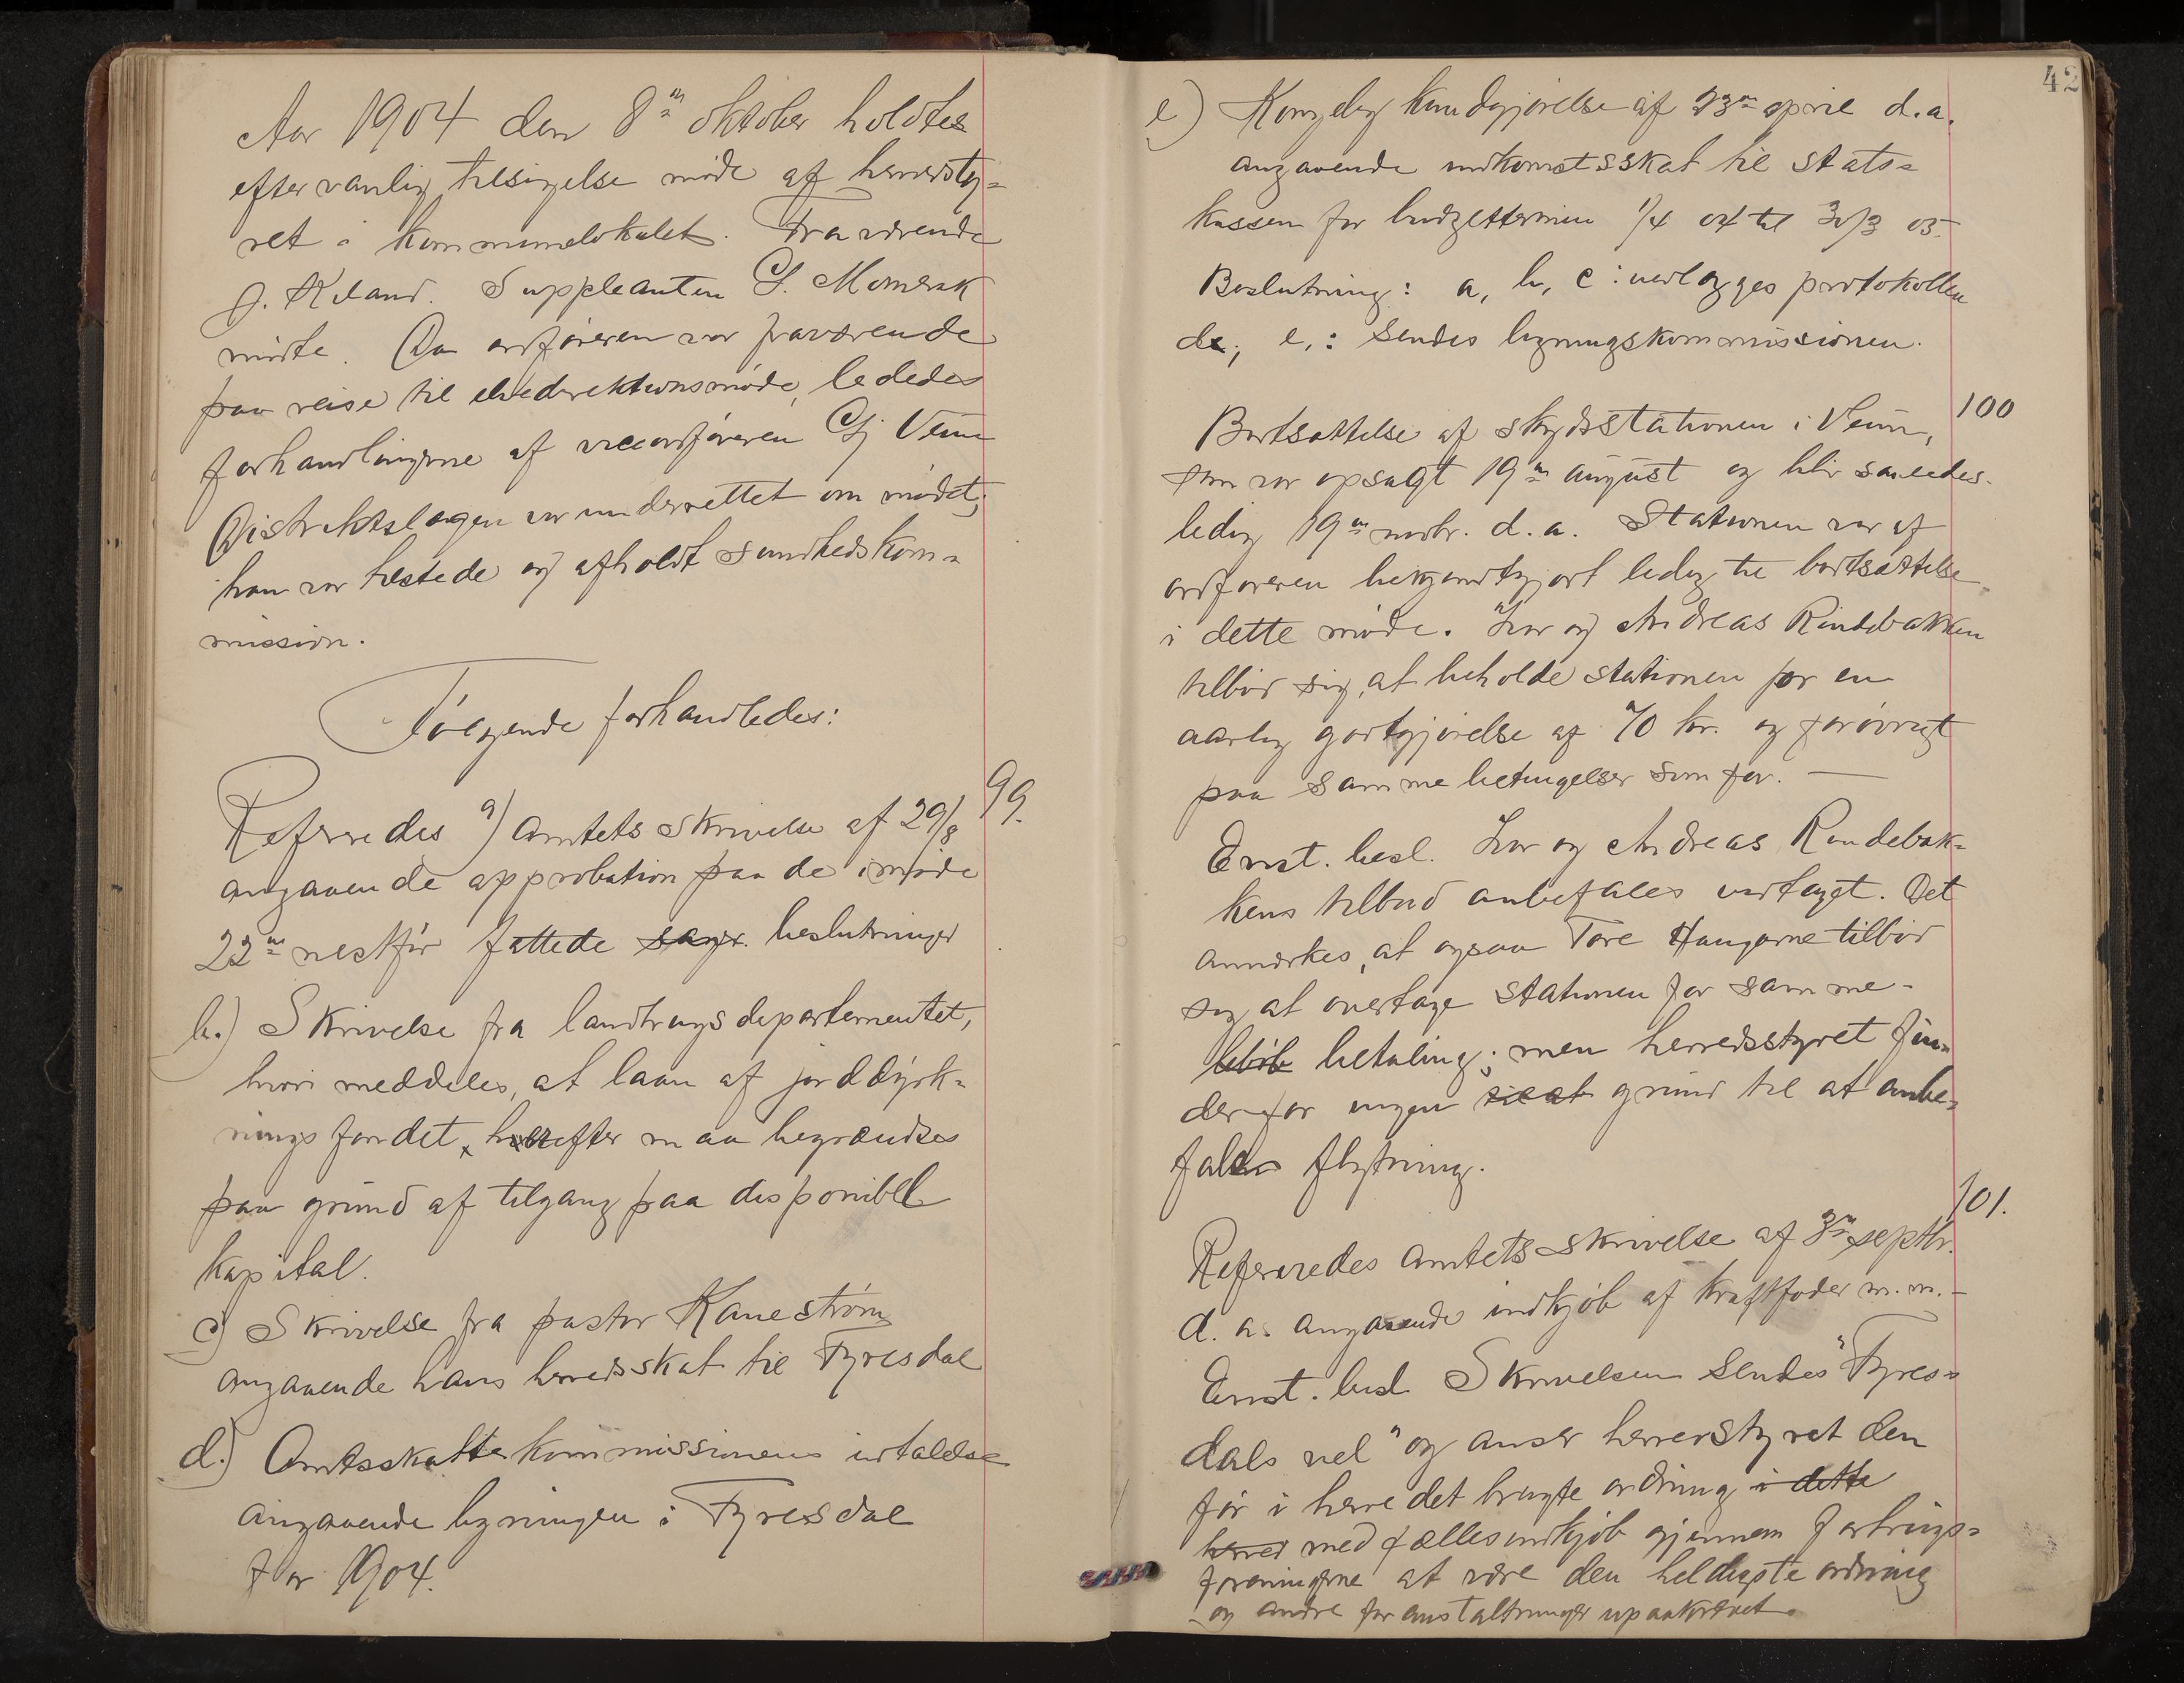 Aar 1904 den 8de oktober holdtes
efter vanlig tilsigelse møde af herredsty-
ret i kommunelokalet. Fraværende
J. Kiland. Suppleanten G. Momrak
mødte. Da ordføreren var fraværende
paa reise til direktionsmøde, lededes
forhandlingerne af viceordføreren Gj Veum
Distriktslægen var underrettet om mødet;
han var tilstede og afholdt sundhedskom-
mission.
Følgende forhandledes:
99.
Refereredes a) Amtets skrivelse af 29/8
angaaende approbation paa de i møde
22de nestfør fattede sager. beslutninger
b.) Skrivelse fra landbrugsdepartementet,
hvori meddeles, at laan af jorddyrk-
ningsfondet, herefter maa begrændses
paa grund af tilgang paa disponibel
kapital.
c) Skrivelse fra pastor Kaneström
angaaende hans herredsskat til Fyresdal
d.) Amtsskattekommissionens udtalelse
angaaende ligningen i Fyresdal
for 1904.
42
e) Kongelig kundgjørelse af 23de april d.a.
angaaende indkomstsskat til stats-
kassen for budgetterminen 1/4 04 til 30/3 05.
Beslutning: a, b, c: vedlægges protokollen
d, e,: sendes ligningskommissionen.
100
Bortsættelse af skydsstationen i Veum,
som var opsagt 19de august og blir saaledes
ledig 19de novbr. d.a. Stationen var af
ordføreren bekjendtgjort ledig til bortsættelse
i dette møde. Ivar og Andreas Rindebakken
tilbød sig, at beholde stationen for en
aarlig godtgjørelse af 70 kr. og forøvrigt
paa samme betingelser som før. —
Enst. besl. Ivar og Andreas Rindebak-
kens tilbud anbefales vedtaget. Det
anmærkes, at ogsaa Tore Haugarne tilbød
sig at overtage stationen for samme
beløb betaling; men herredsstyret fin-
der for ingen grund til at anbe-
fale flytning.
101.
Refereredes amtets skrivelse af 3de septbr.
d. a. angaaende indkjøb af kraftfoder m.m. -
Enst. besl. Skrivelsen sendes "Fyres-
dals vel" og anser herredsstyret den
før i herredet brugte ordning i dette
herred med fællesindkjøb gjennem forbrugs-
foreningerne at være den heldigste ordning
og andre foranstaltninger upaakrævet.